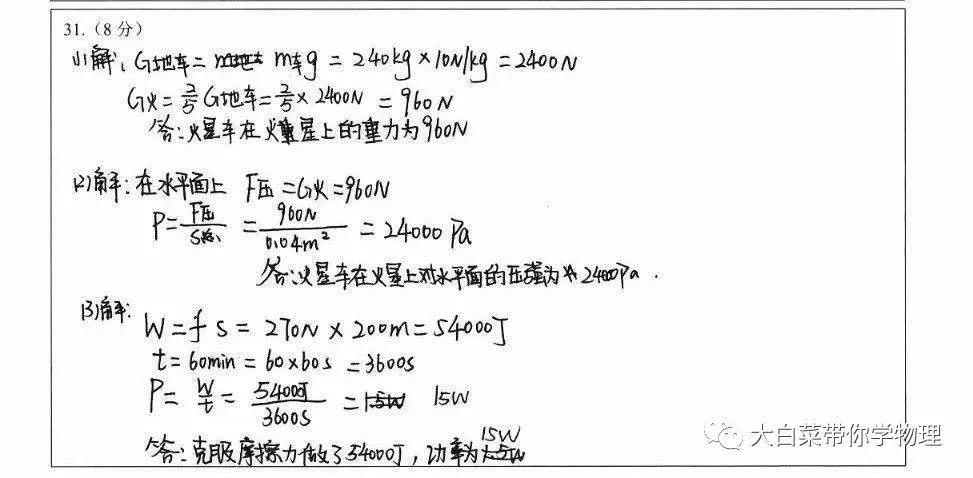 31.（8分）
(1)解: G地车= m地车 m车g = 240kg×10N/kg = 2400N
G火=2/5 G地车=2/5×2400N = 960N
答:火星车在火星上的重力为960N
(2)解:在水平面上 F压=G火=960N
P=F压/S总 = 960N/0.04m² = 24000 Pa
答:火星车在火星上对水平面的压强为24000Pa.
(3)解:
W=fs= 270N×200m=54000J
t=60min=60×60s=3600s
P=W/t=54000J/3600s=1.5W 15W
15W
答:克服摩擦力做了54000J,功率为1.5W
大白菜带你学物理